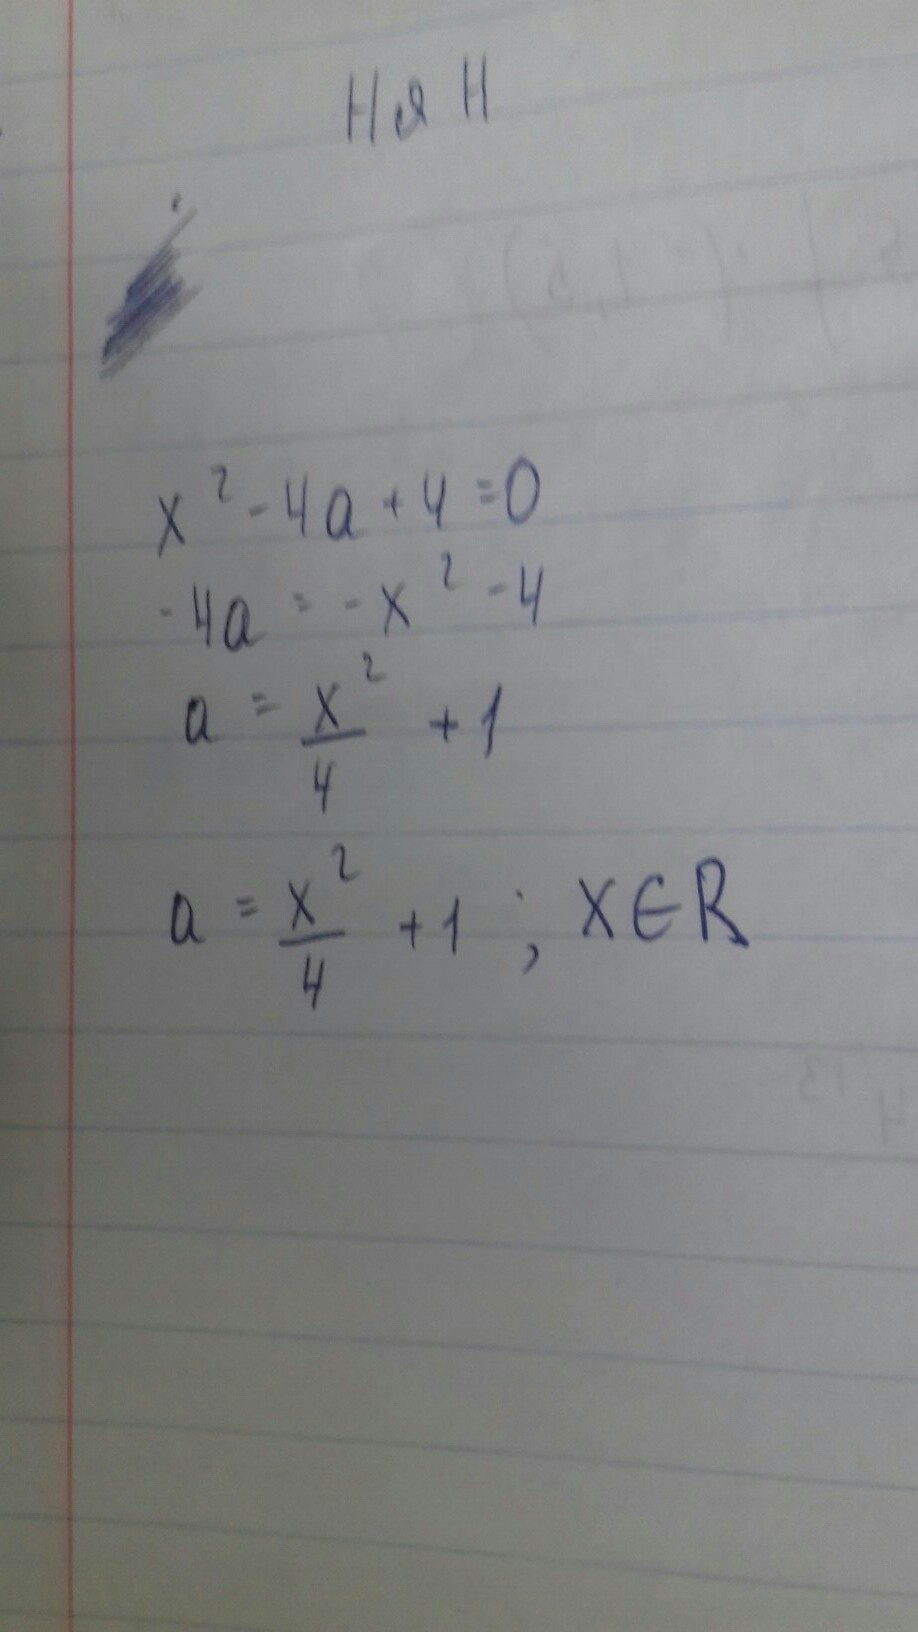 Н я Н
x² - 4a + 4 = 0
-4a = -x² - 4
a = x²/4 + 1
a = x²/4 + 1 ; x∈R